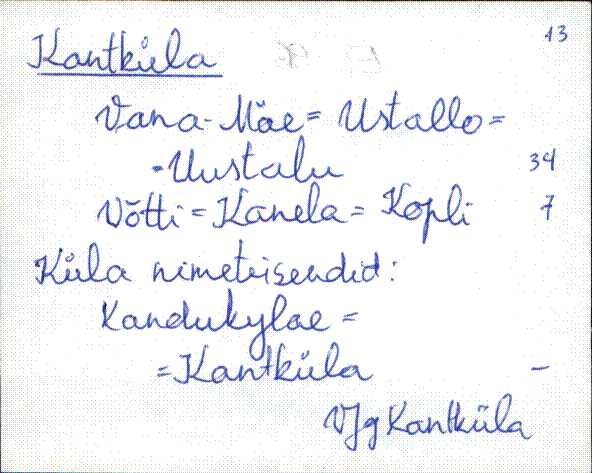 13
Kantküla
Vana-Mäe = Ustallo =
= Uustalu 34
Võtti = Kanela = Kopli 7
Küla nimeteisendid:
Kandukylae =
= Kantküla –
VJg Kantküla